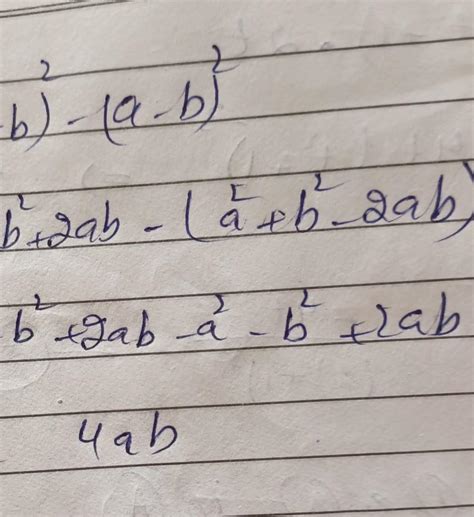 b)² - (a - b)²
b² + 2ab - (a² + b² - 2ab)
b² + 2ab - a² - b² + 2ab
4ab